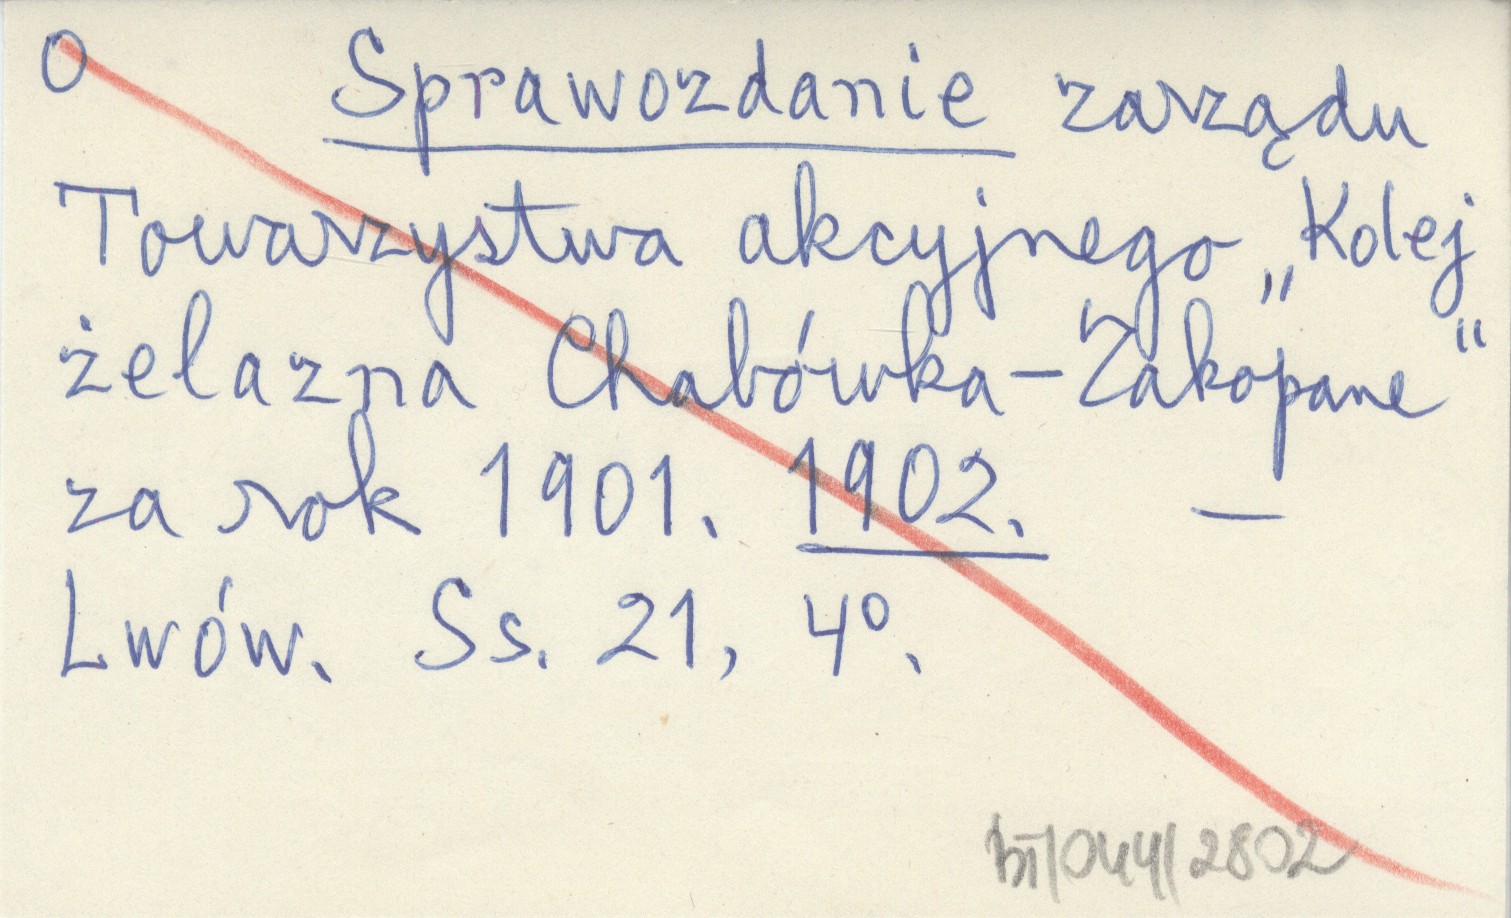 O Sprawozdanie zarządu
Towarzystwa akcyjnego „Kolej
żelazna Chabówka-Zakopane“
za rok 1901. 1902. —
Lwów. Ss. 21, 4º.
bī/044/2802